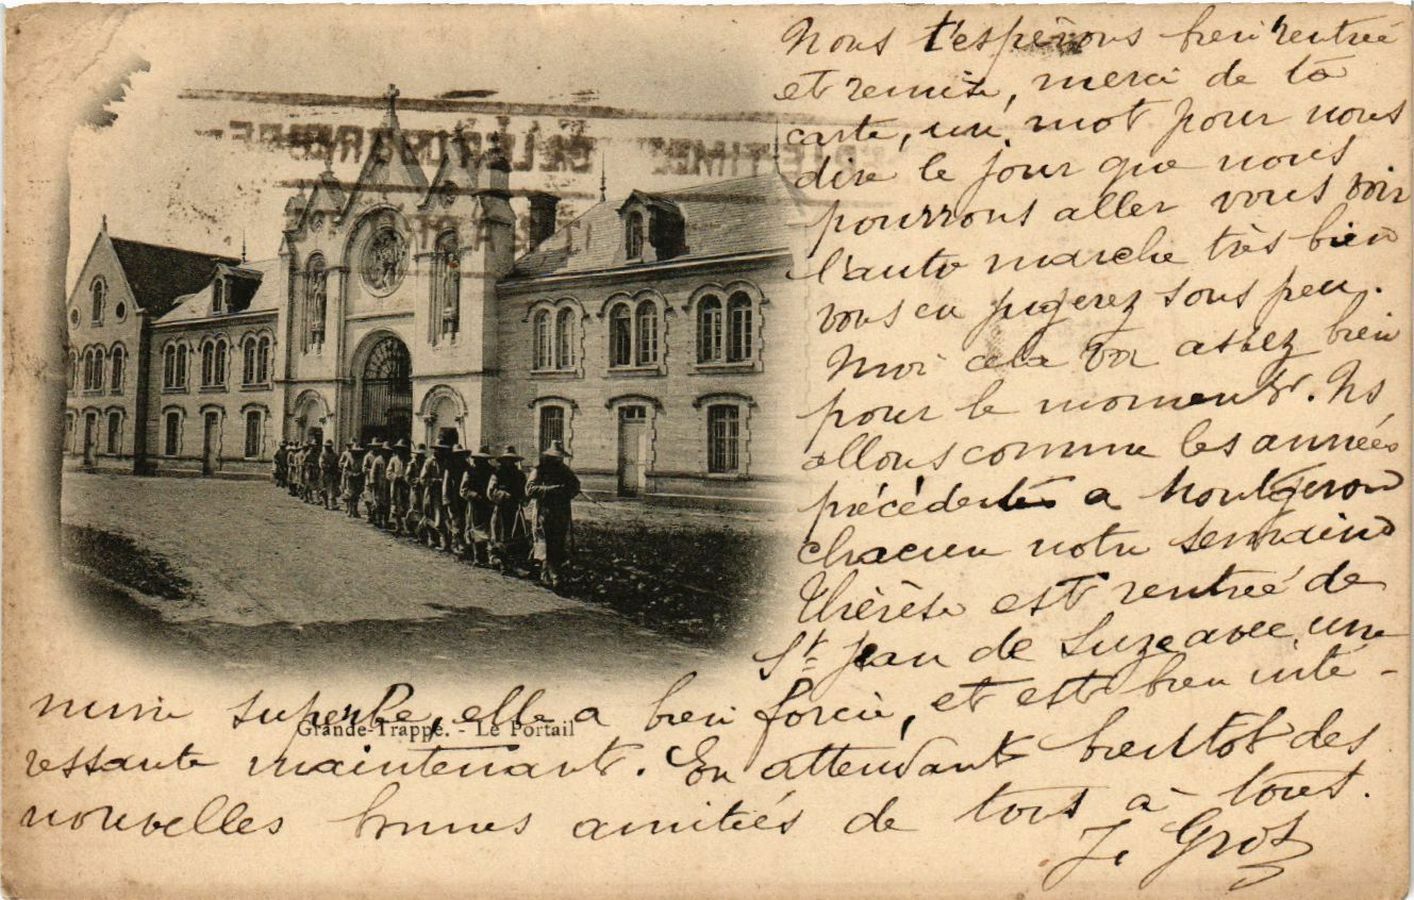 Nous t'espérons bien rentrée
et remise, merci de ta
carte, un mot pour nous
dire le jour que nous
pourrons aller vous voir
l'auto marche très bien
vous en jugerez sous peu.
Moi cela va assez bien
pour le moment. Ns
allons comme les années
précédentes a Montgeron
chacun notre semaine
Thérèse est rentrée de
St Jean de Luz avec une
mine superbe, elle a bien forcie, et est bien inté-
Grande-Trappe. - Le Portail
ressante maintenant. En attendant bientôt des
nouvelles bonnes amitiés de tous a tous.
J. Grot